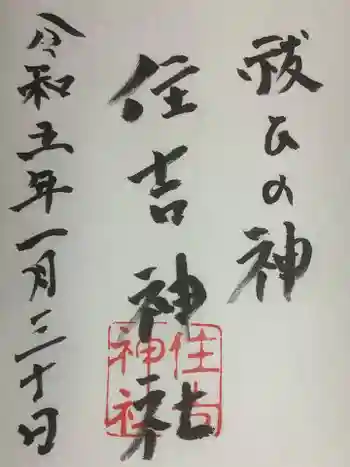 祓ひの神
住吉神社
令和五年一月三十日
住吉
神社